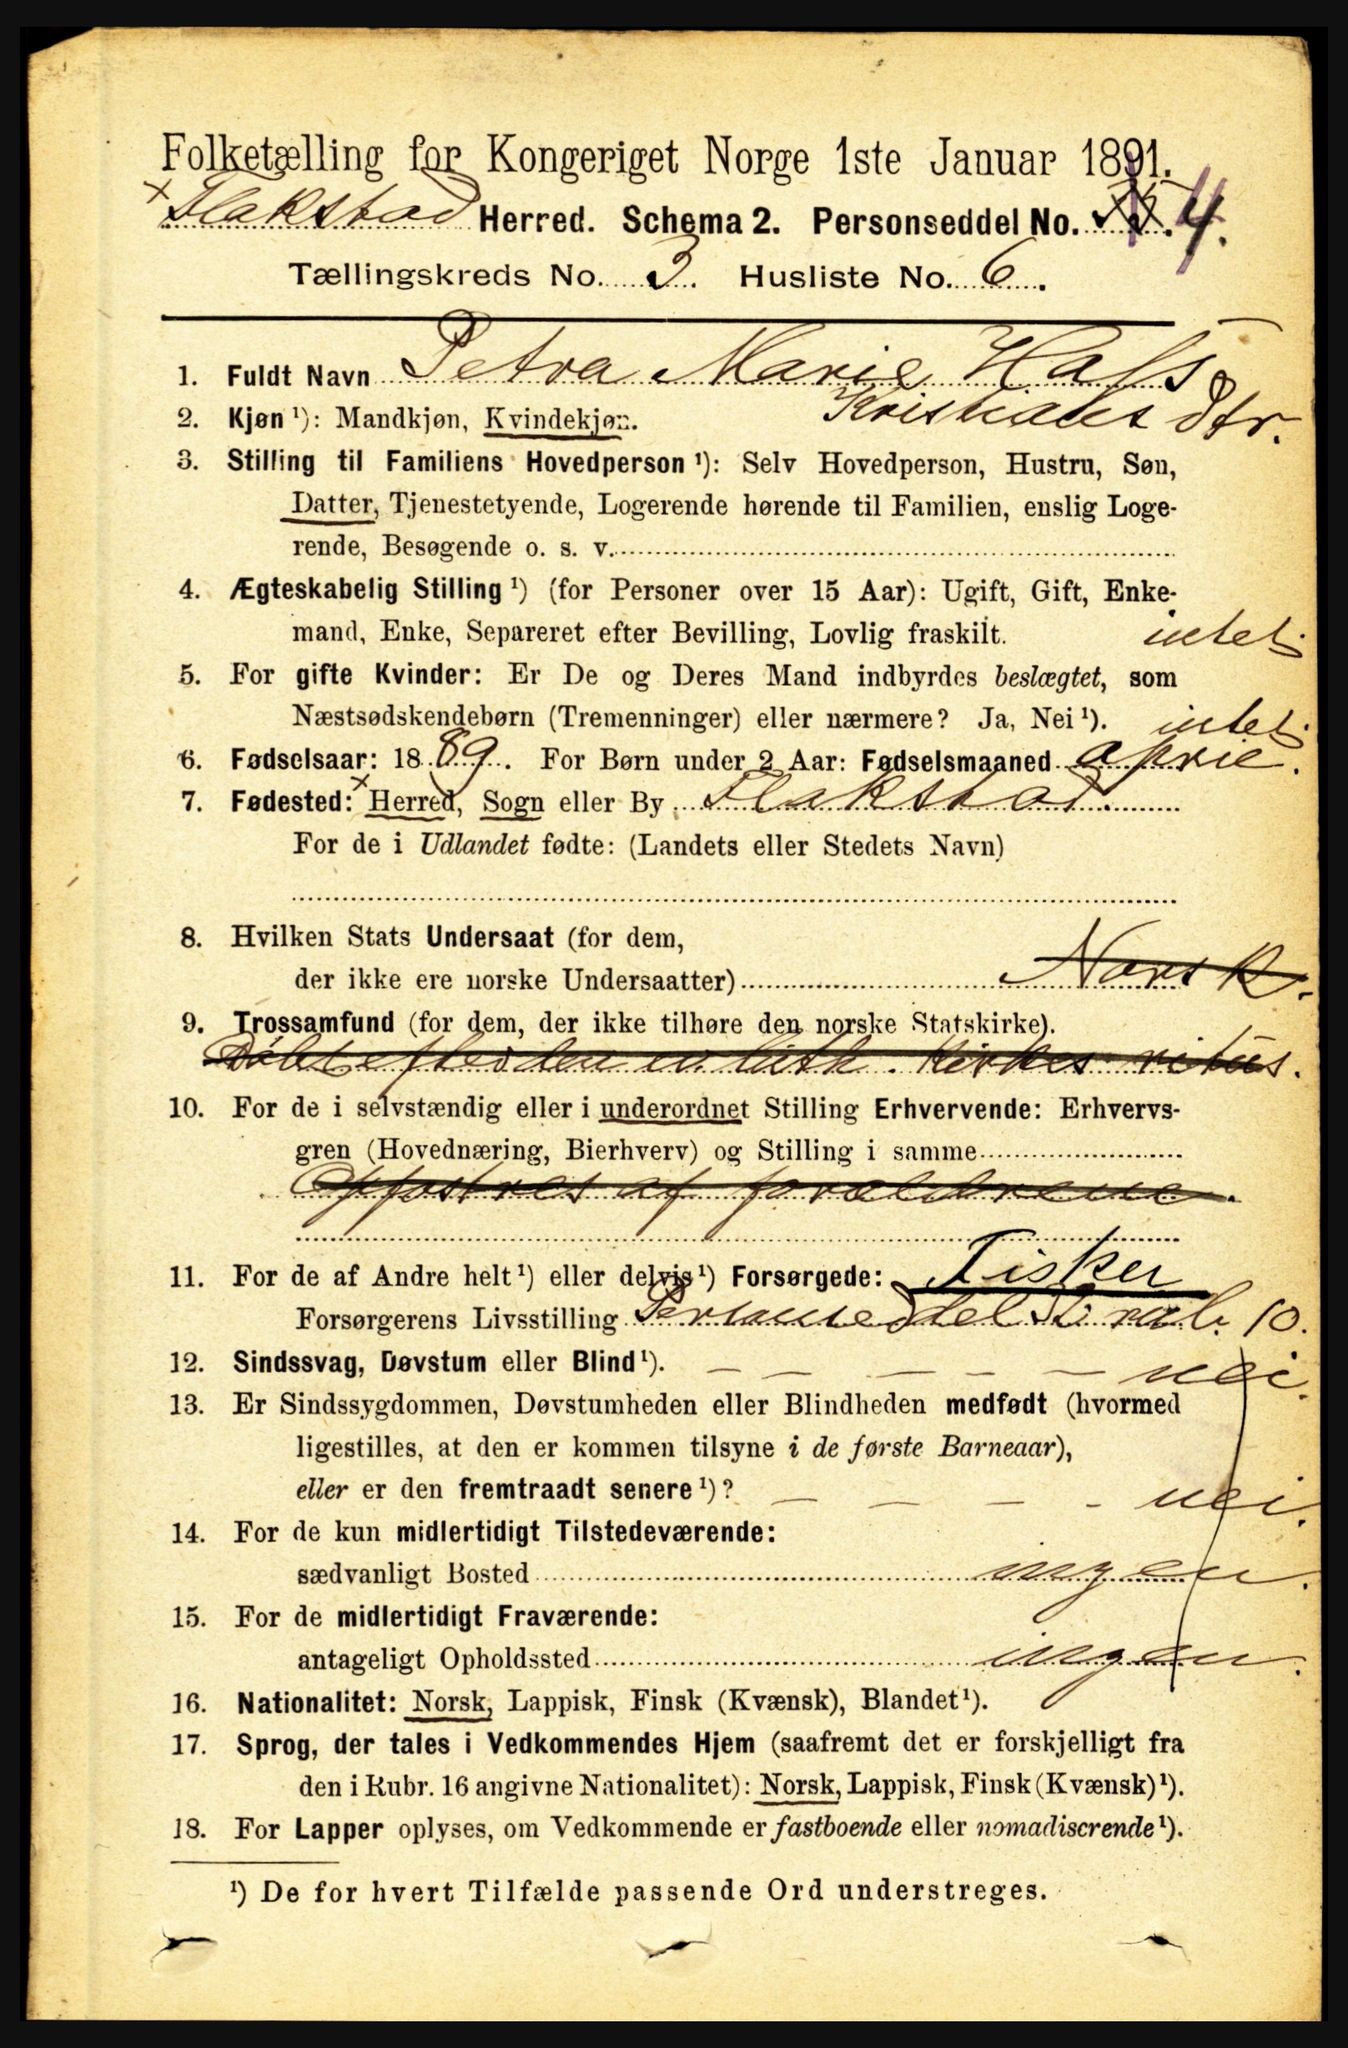 Folketælling for Kongeriget Norge 1ste Januar 1891.
Flakstad Herred. Schema 2. Personseddel No. 4.
Tællingskreds No. 3. Husliste No. 6.
1. Fuldt Navn Petra Marie Hals
Kristians Dtr.
2. Kjøn ¹): Mandkjøn, Kvindekjøn.
3. Stilling til Familiens Hovedperson ¹): Selv Hovedperson, Hustru, Søn,
Datter, Tjenestetyende, Logerende hørende til Familien, enslig Loge-
rende, Besøgende o. s. v.
4. Ægteskabelig Stilling ¹) (for Personer over 15 Aar): Ugift, Gift, Enke-
mand, Enke, Separeret efter Bevilling, Lovlig fraskilt. intet.
5. For gifte Kvinder: Er De og Deres Mand indbyrdes beslægtet, som
Næstsødskendebørn (Tremenninger) eller nærmere? Ja, Nei ¹). intet.
6. Fødselsaar: 1889. For Børn under 2 Aar: Fødselsmaaned april.
7. Fødested: × Herred, Sogn eller By Flakstad.
For de i Udlandet fødte: (Landets eller Stedets Navn)
8. Hvilken Stats Undersaat (for dem,
der ikke ere norske Undersaatter) Norsk.
9. Trossamfund (for dem, der ikke tilhøre den norske Statskirke).
Døbt efter den ev. luth. Kirkes ritus.
10. For de i selvstændig eller i underordnet Stilling Erhvervende: Erhvervs-
gren (Hovednæring, Bierhverv) og Stilling i samme
Opfostres af forældrene.
11. For de af Andre helt ¹) eller delvis ¹) Forsørgede: Fisker
Forsørgerens Livsstilling Personseddel 10.
12. Sindssvag, Døvstum eller Blind ¹). – – – – – nei.
13. Er Sindssygdommen, Døvstumheden eller Blindheden medfødt (hvormed
ligestilles, at den er kommen tilsyne i de første Barneaar),
eller er den fremtraadt senere ¹)? – – – - nei.
14. For de kun midlertidigt Tilstedeværende:
sædvanligt Bosted ingen.
15. For de midlertidigt Fraværende:
antageligt Opholdssted ingen.
16. Nationalitet: Norsk, Lappisk, Finsk (Kvænsk), Blandet ¹).
17. Sprog, der tales i Vedkommendes Hjem (saafremt det er forskjelligt fra
den i Rubr. 16 angivne Nationalitet): Norsk, Lappisk, Finsk (Kvænsk) ¹).
18. For Lapper oplyses, om Vedkommende er fastboende eller nomadiserende ¹).
¹) De for hvert Tilfælde passende Ord understreges.